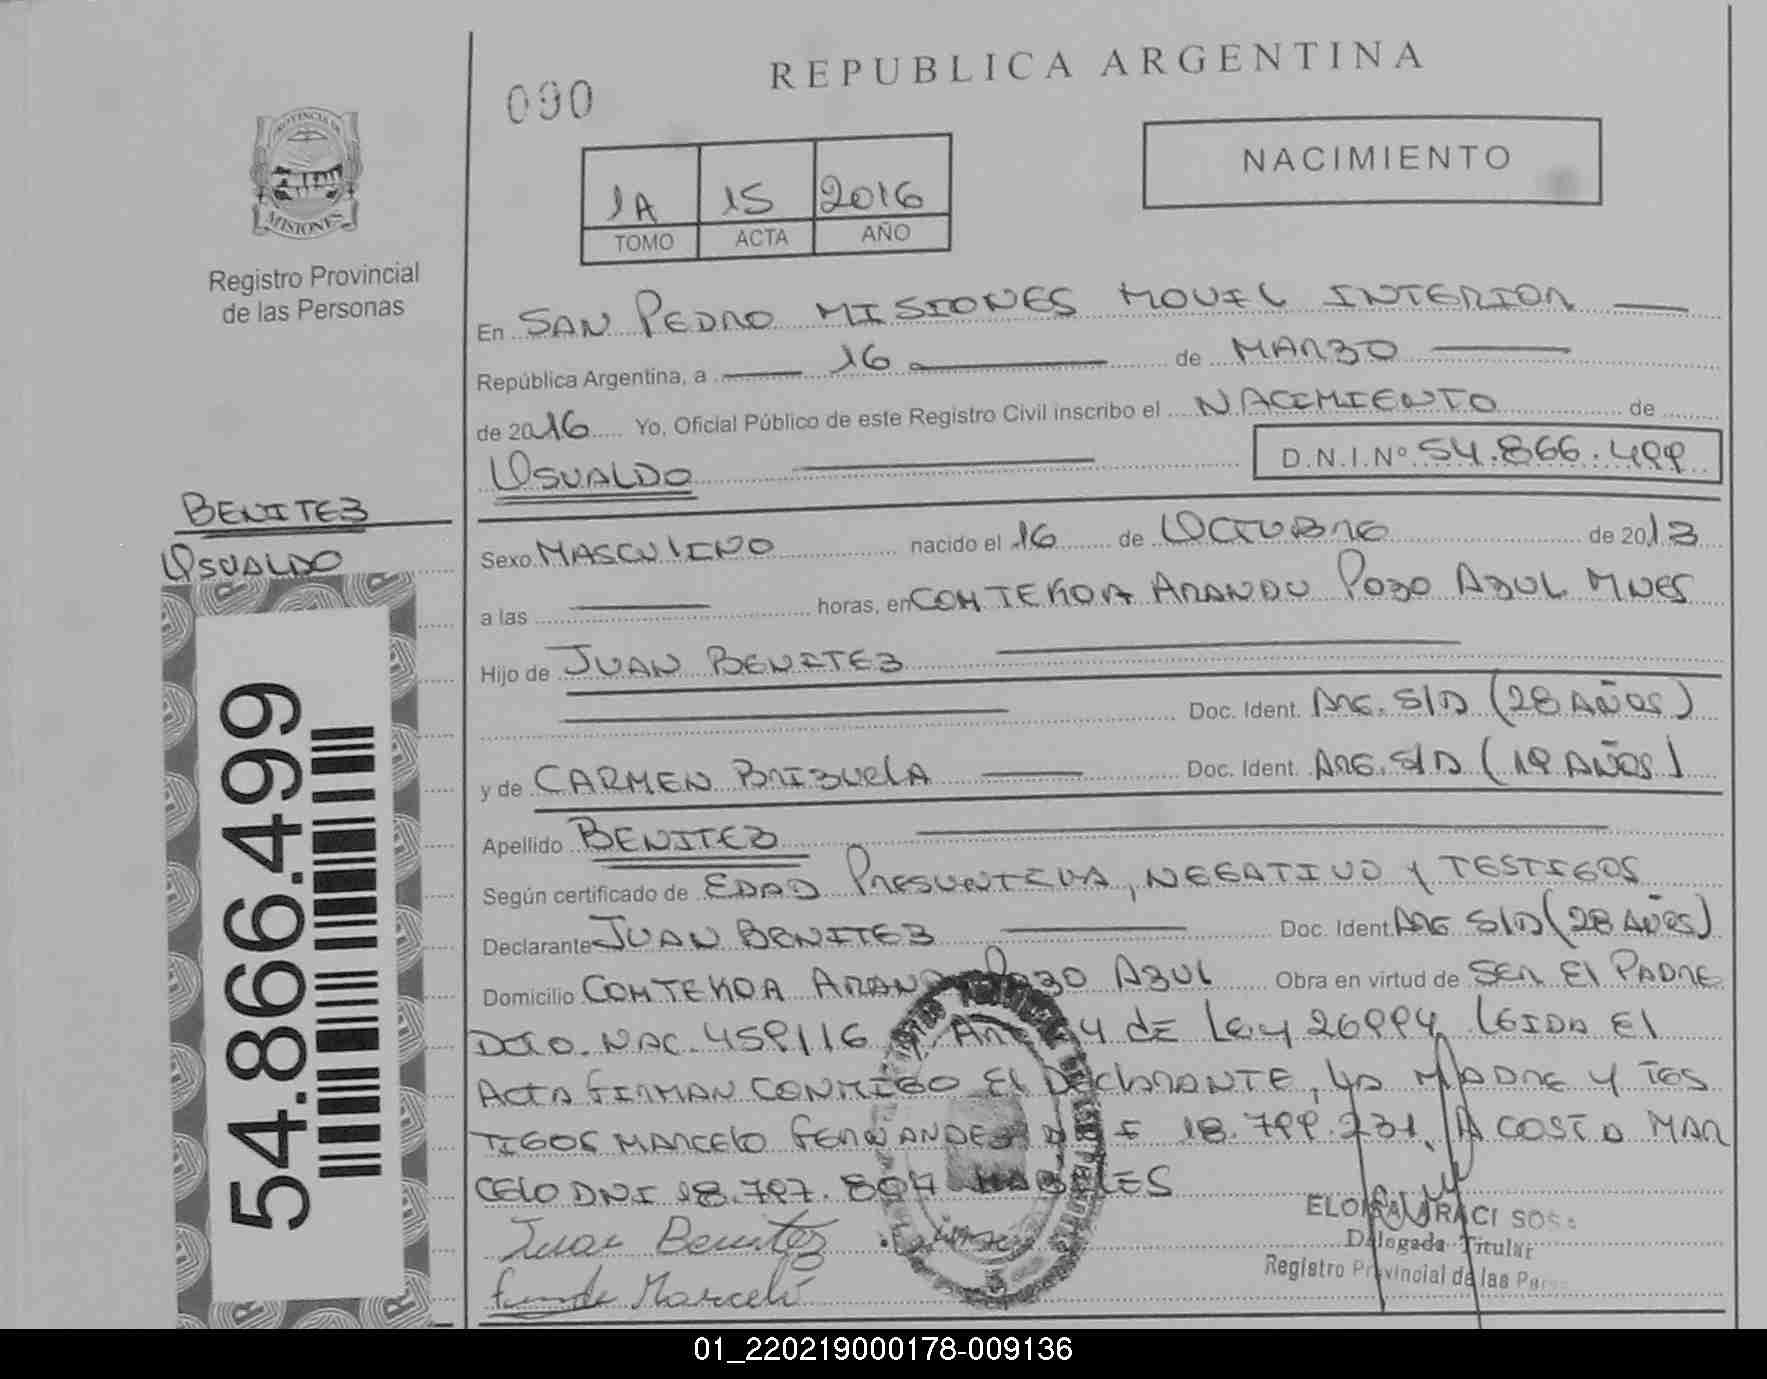 REPUBLICA ARGENTINA
090
NACIMIENTO
1A 15 2016
TOMO ACTA AÑO
PROVINCIA DE MISIONES
Registro Provincial
de las Personas
En SAN PEDRO MISIONES MOVIL INTERIOR
República Argentina, a 16 de MARZO
de 2016 Yo, Oficial Público de este Registro Civil inscribo el NACIMIENTO de
OSVALDO D.N.I.Nº 54.866.499
BENITEZ
OSVALDO
Sexo MASCULINO nacido el 16 de OCTUBRE de 2013
a las horas, en COM TEKOA ARANDU POZO AZUL MNES
Hijo de JUAN BENITEZ
Doc. Ident. ARG. S/D (28 AÑOS)
y de CARMEN BRIZUELA Doc. Ident. ARG. S/D (19 AÑOS)
Apellido BENITEZ
Según certificado de EDAD PRESUNTIVA, NEGATIVO y TESTIGOS
Declarante JUAN BENITEZ Doc. Ident. ARG S/D (28 AÑOS)
Domicilio COM TEKOA POZO AZUL Obra en virtud de SER El PADRE
DCTO. NAC. 459/16 4 de Ley 26994 LEIDA El
ACTA FIRMAN CONMIGO El DEClARANTE, LA MADRE y TES
TIGOS MARCELO FERNANDEZ DNI 18.799.231, ACOSTA MAR
CELO DNI 18.797. HABILES
Juan Benitez
Marcelo
ELOISA IRACI SOSA
Delegada Titular
Registro Provincial de las
54.866.499
01_220219000178-009136